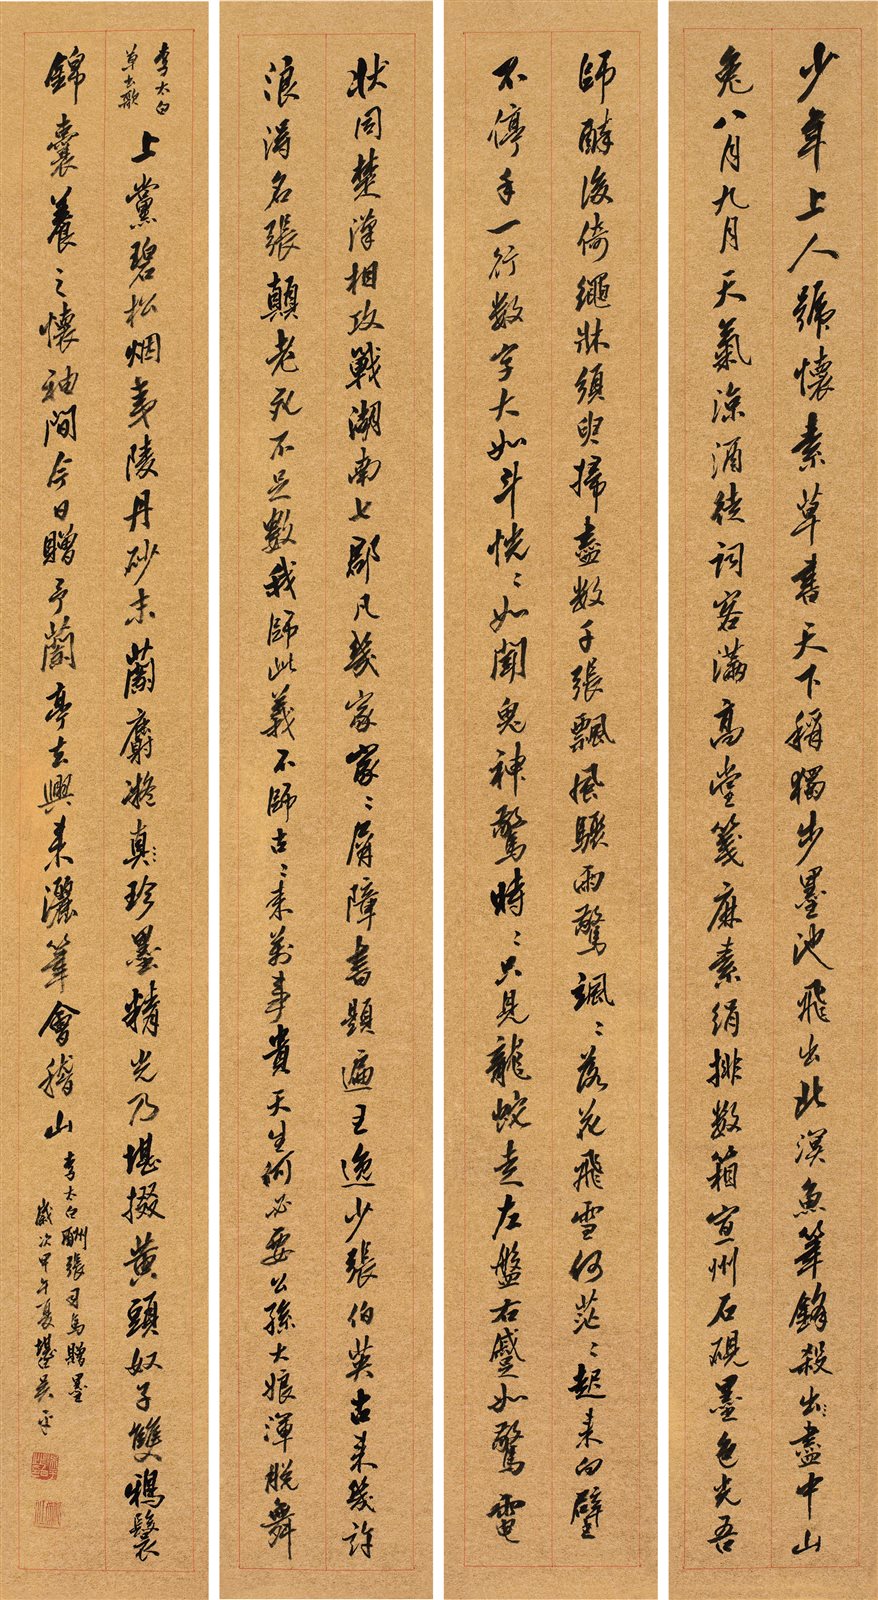 少年上人號懷素草書天下稱獨步墨池飛出北溟魚筆鋒殺出盡中山
兔八月九月天氣涼酒徒詞客滿高堂箋麻素絹排數箱宣州石硯墨色光吾
師醉後倚繩牀須臾掃盡數千張飄風驟雨驚颯〻落花飛雪何茫〻起來向壁
不停手一行數字大如斗恍〻如聞鬼神驚時〻只見龍蛇走左盤右蹙如驚電
狀同楚漢相攻戰湖南七郡凡幾家家〻屏障書題遍王逸少張伯英古來幾許
浪得名張顛老死不足數我師此義不師古〻來萬事貴天生何必要公孫大娘渾脫舞
李太白
草書歌
上黨碧松烟夷陵丹砂末蘭麝凝真珍墨精光乃堪掇黃頭奴子雙鴉鬟
錦囊養之懷袖間今日贈予蘭亭去興來灑筆會稽山
李太白酬張司馬贈墨
歲次甲午夏吳平